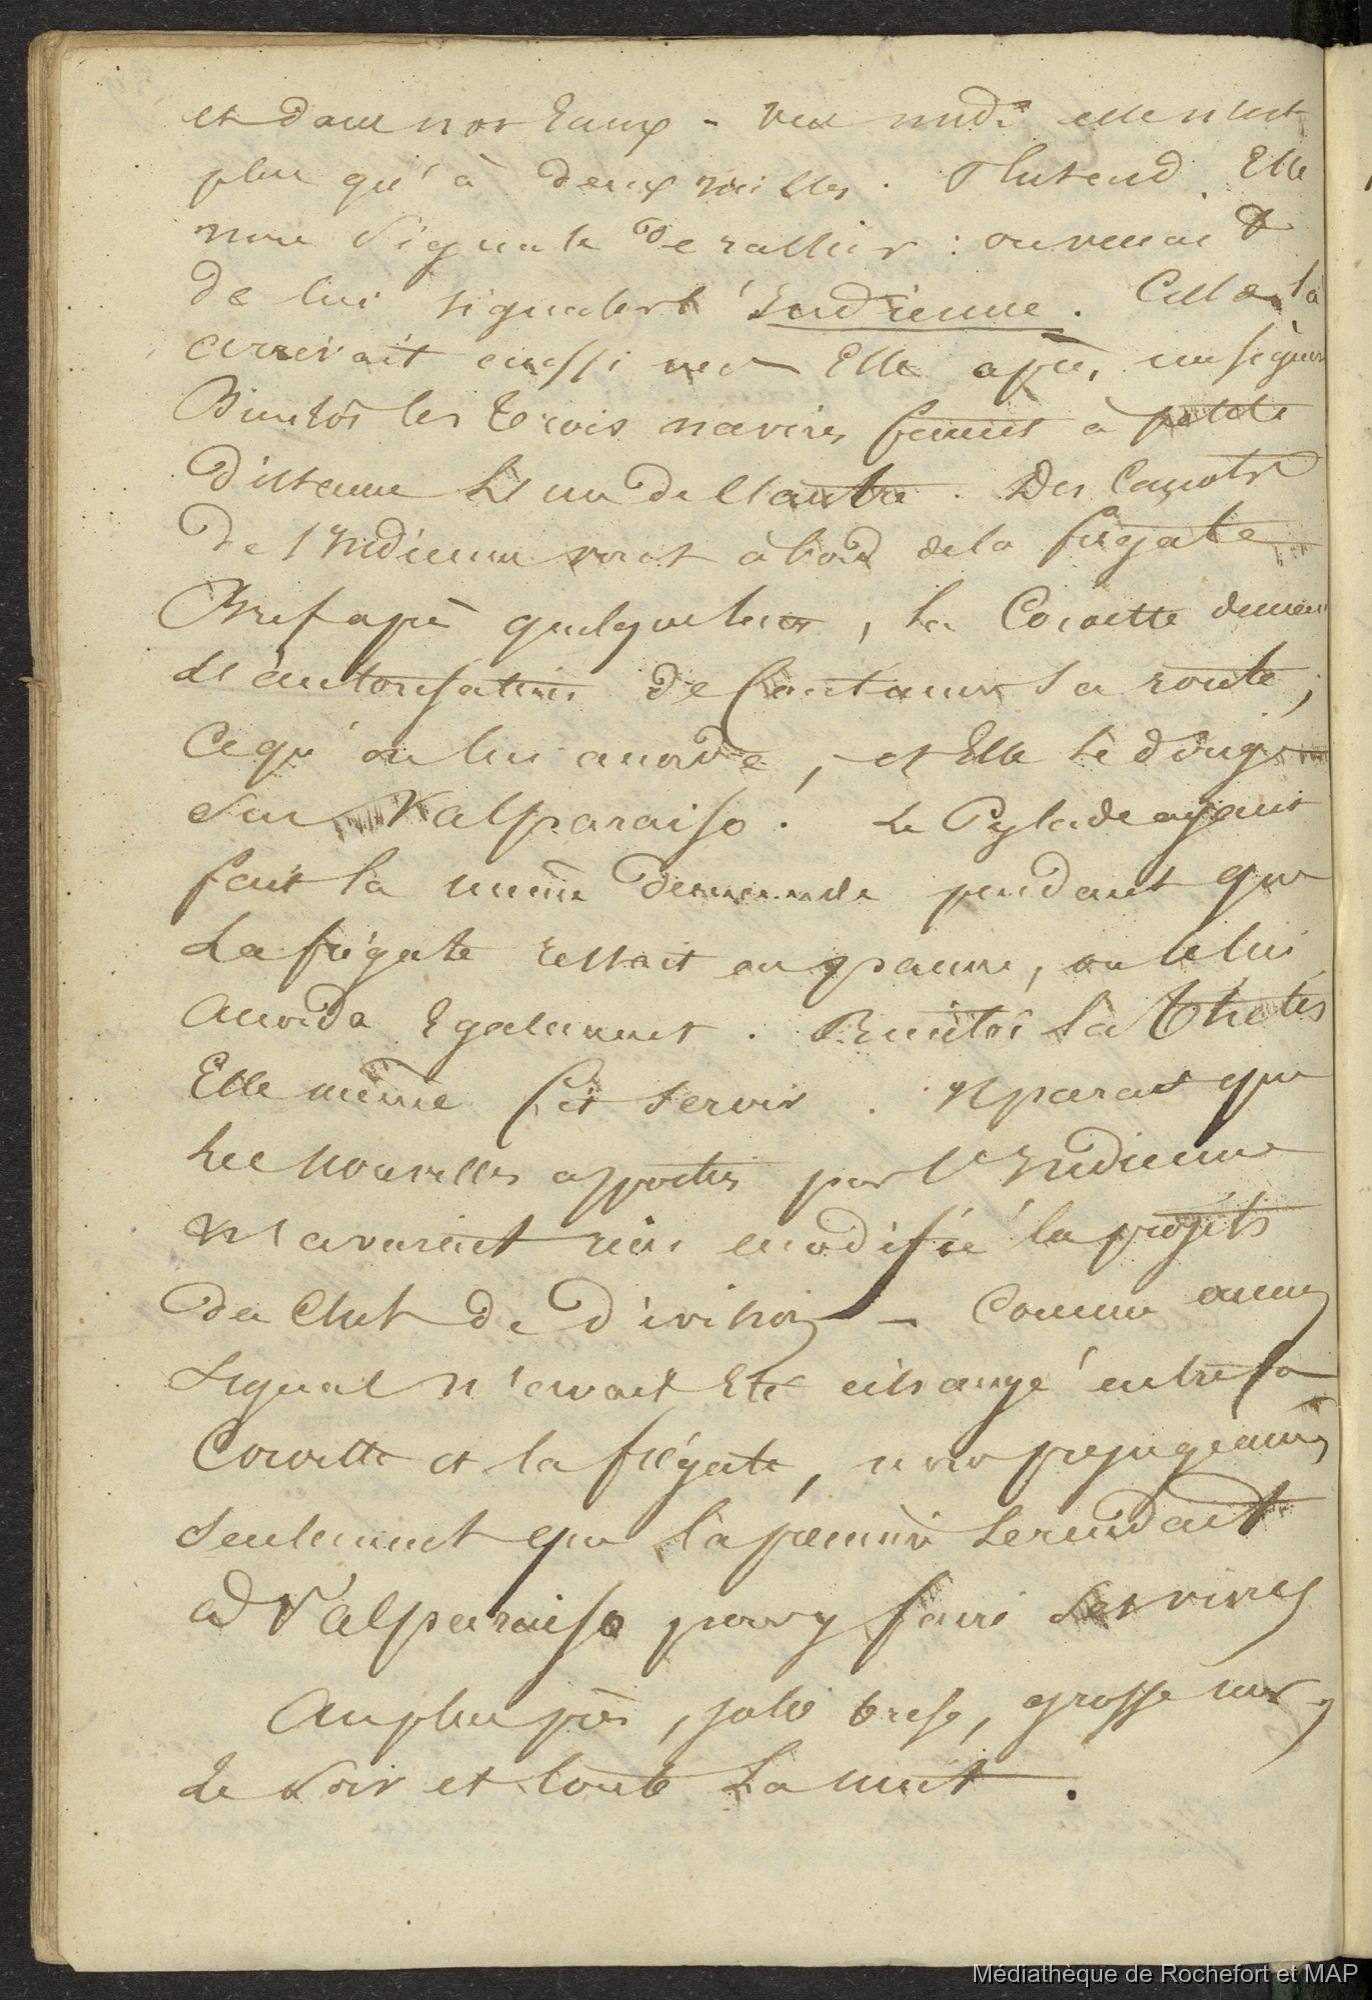 et dans nos Eaux - vers midi elle n'est
plus qu'à deux milles. Plus tard Elle
nous signale de rallier : on venait
de lui signaler l'Indienne. Celle-là
arrivait aussi vers Elle après un signal
Bientôt les trois navires furent à petite
distance l'un de l'autre. Des Canots
de l'Indienne vont à bord de la frégate
Bref après quelques heures, la Corvette demande
l'autorisation de Continuer sa route,
Ce qu'on lui accorde, et Elle se dirige
sur Valparaiso. Le Pylade ayant
fait la même demande pendant que
la frégate restait en panne, on le lui
accorda Egalement. Bientôt la Thetis
Elle même fit servir. Il parait que
les nouvelles apportées par l'Indienne
n'avaient rien modifié les projets
du Chef de Division - Comme aucun
signal n'avait Eté échangé entre la
Corvette et la frégate, nous préjugeâmes
seulement que la première se rendait
à Valparaiso pour y faire des vivres
Au plus près, jolie brise, grosse mer,
le soir et toute la nuit.
Médiathèque de Rochefort et MAP